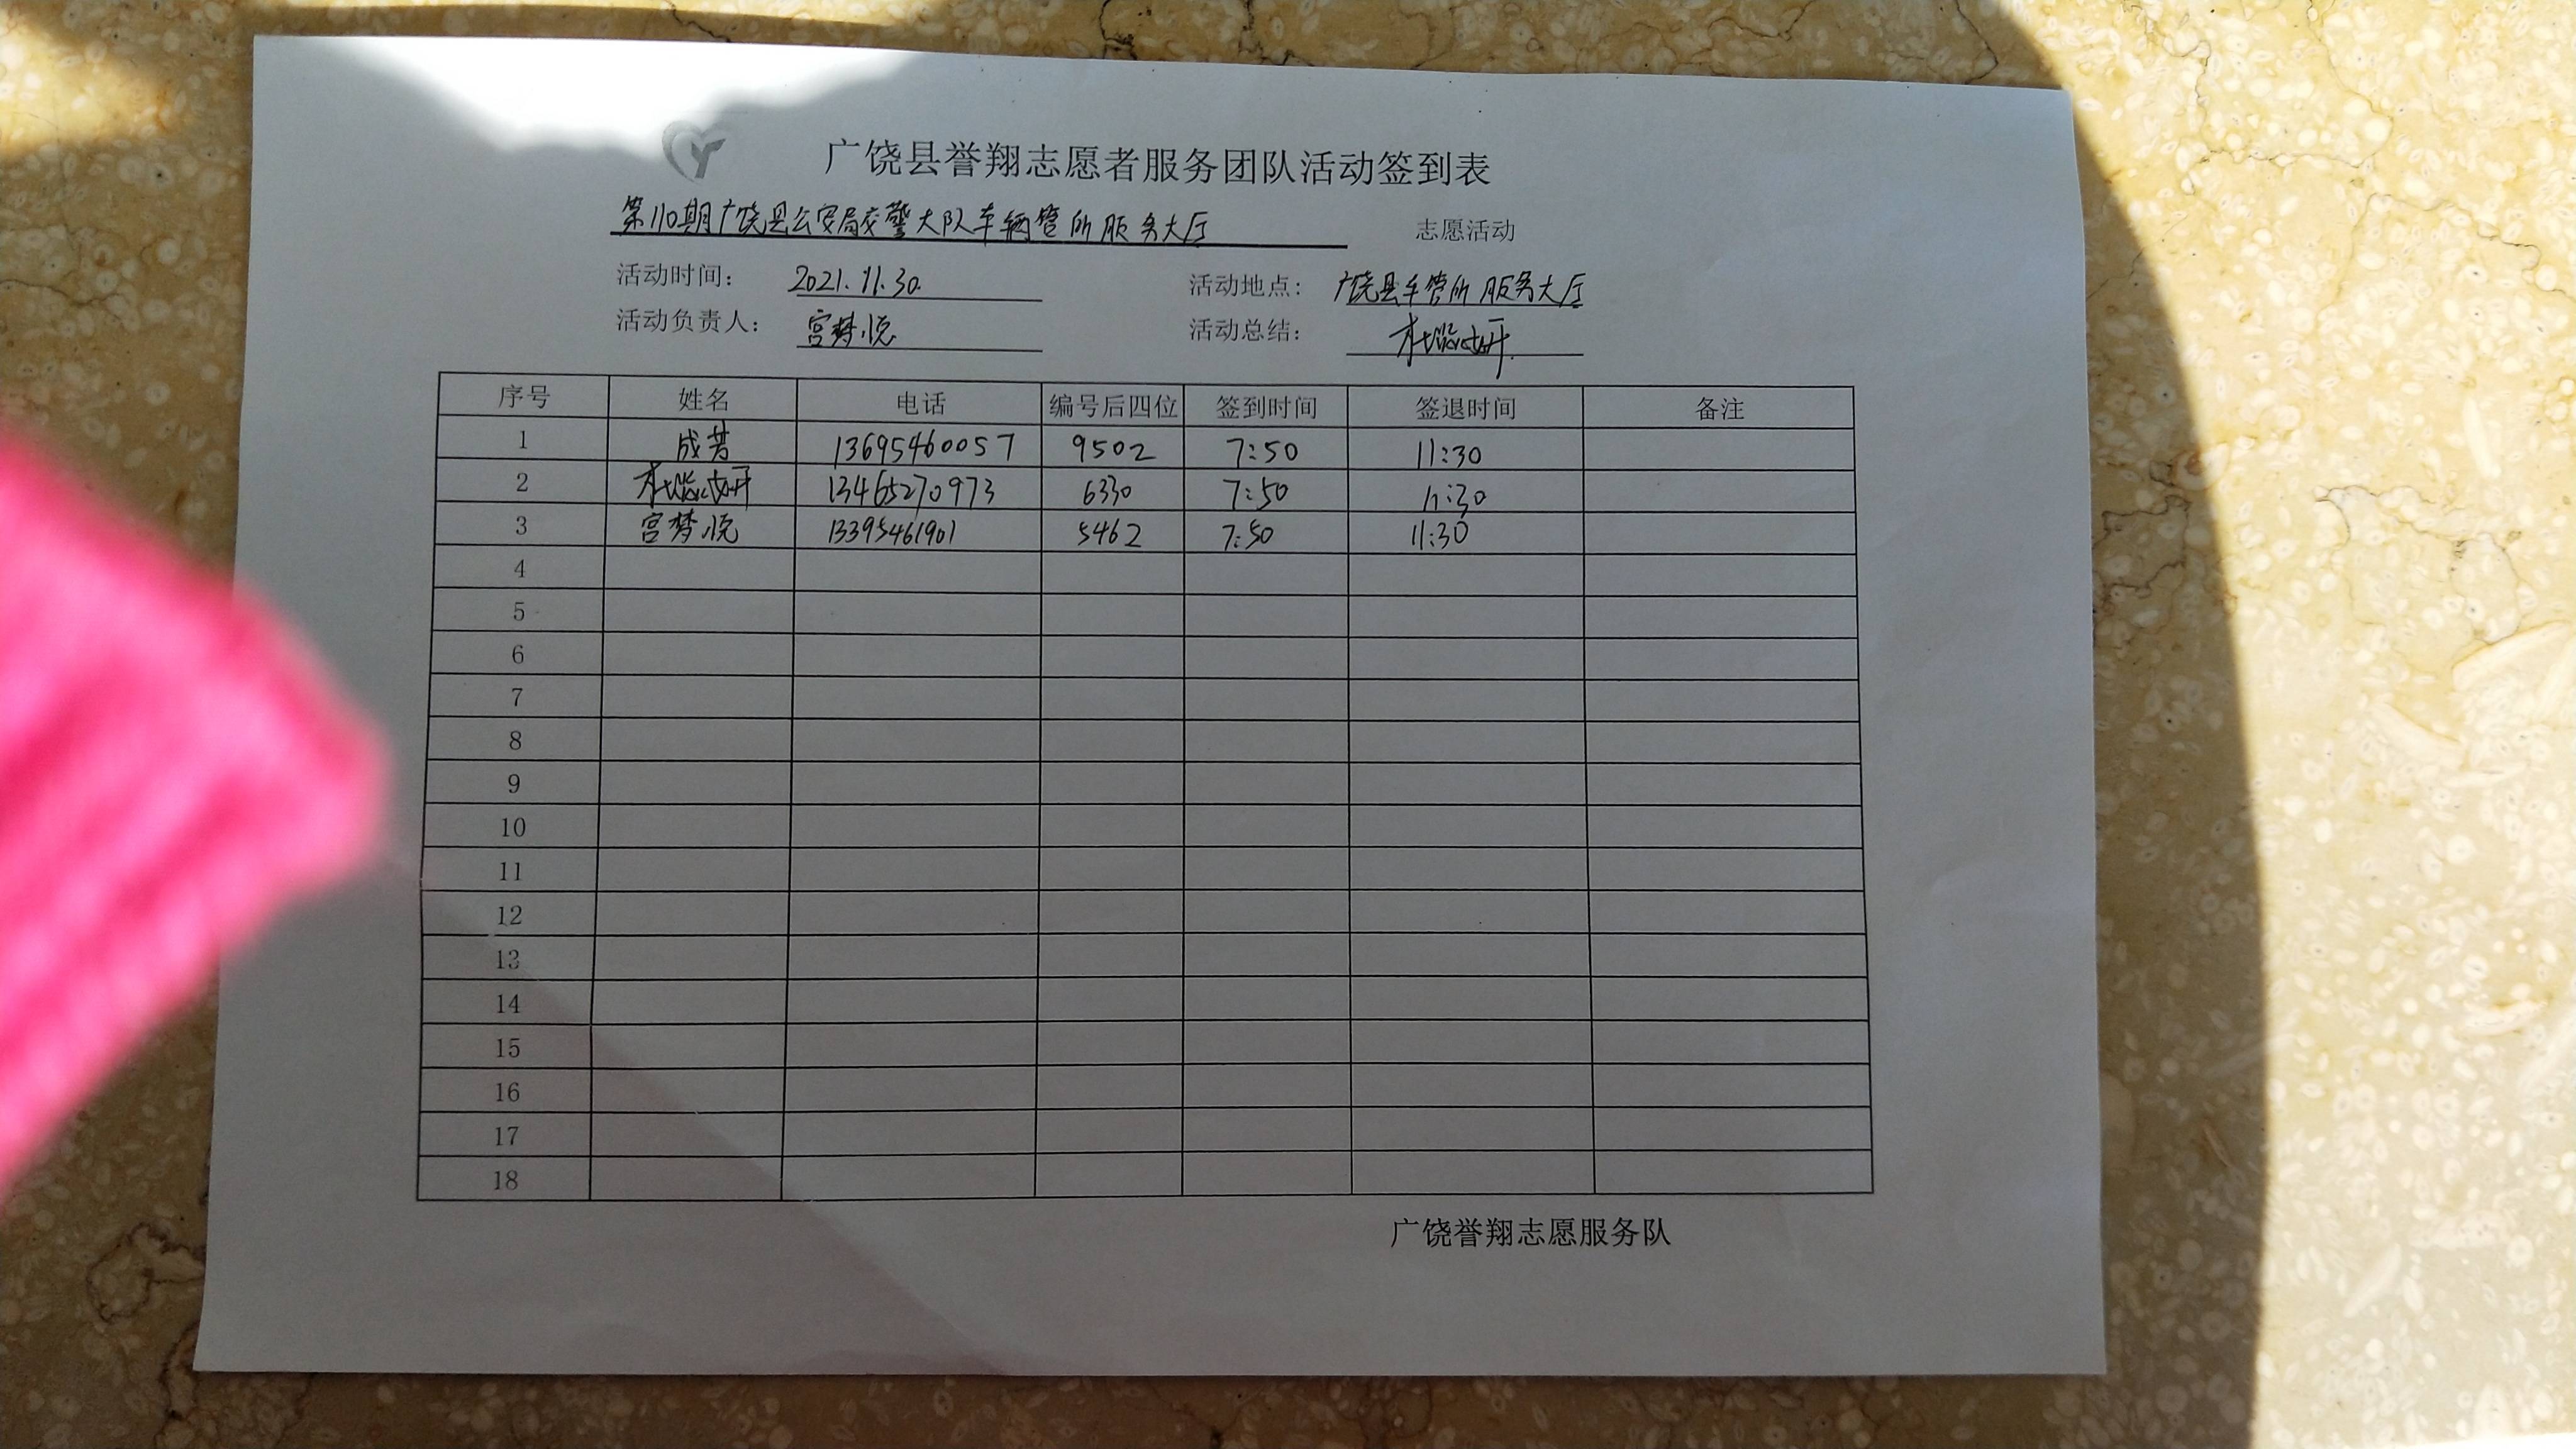 广饶县誉翔志愿者服务团队活动签到表
第110期广饶县公安局交警大队车辆管所服务大厅 志愿活动
活动时间： 2021.11.30. 活动地点： 广饶县车管所服务大厅
活动负责人： 宫梦悦 活动总结：
序号 姓名 电话 编号后四位 签到时间 签退时间 备注
1 成芳 13695460057 9502 7:50 11:30
2 13465270973 6330 7:50 11:30
3 宫梦悦 13395461901 5462 7:50 11:30
4
5
6
7
8
9
10
11
12
13
14
15
16
17
18
广饶誉翔志愿服务队